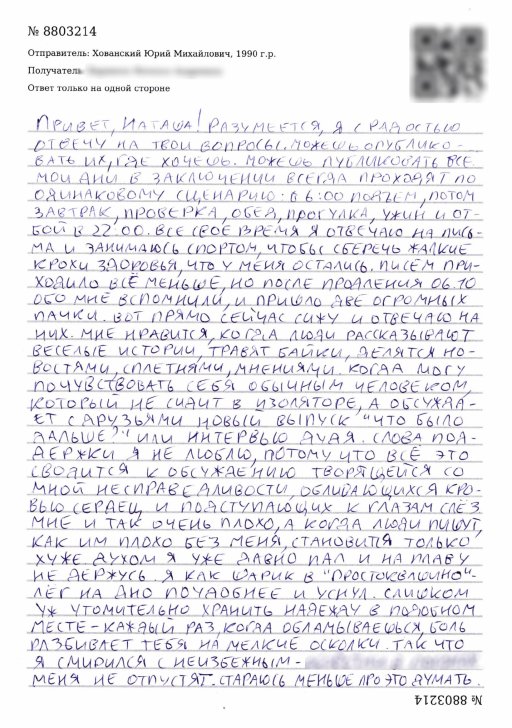 № 8803214
Отправитель: Хованский Юрий Михайлович, 1990 г.р.
Получатель
Ответ только на одной стороне
ПРИВЕТ, НАТАША! РАЗУМЕЕТСЯ, Я С РАДОСТЬЮ
ОТВЕЧУ НА ТВОИ ВОПРОСЫ. МОЖЕШЬ ОПУБЛИКО-
ВАТЬ ИХ, ГДЕ ХОЧЕШЬ. МОЖЕШЬ ПУБЛИКОВАТЬ ВСЕ.
МОИ ДНИ В ЗАКЛЮЧЕНИИ ВСЕГДА ПРОХОДЯТ ПО
ОДИНАКОВОМУ СЦЕНАРИЮ: В 6:00 ПОДЪЕМ, ПОТОМ
ЗАВТРАК, ПРОВЕРКА, ОБЕД, ПРОГУЛКА, УЖИН И ОТ-
БОЙ В 22:00. ВСЕ СВОЕ ВРЕМЯ Я ОТВЕЧАЮ НА ПИСЬ-
МА И ЗАНИМАЮСЬ СПОРТОМ, ЧТОБЫ СБЕРЕЧЬ ЖАЛКИЕ
КРОХИ ЗДОРОВЬЯ, ЧТО У МЕНЯ ОСТАЛИСЬ. ПИСЕМ ПРИ-
ХОДИЛО ВСЁ МЕНЬШЕ, НО ПОСЛЕ ПРОДЛЕНИЯ 06.10
ОБО МНЕ ВСПОМНИЛИ, И ПРИШЛО ДВЕ ОГРОМНЫХ
ПАЧКИ. ВОТ ПРЯМО СЕЙЧАС СИЖУ И ОТВЕЧАЮ НА
НИХ. МНЕ НРАВИТСЯ, КОГДА ЛЮДИ РАССКАЗЫВАЮТ
ВЕСЕЛЫЕ ИСТОРИИ, ТРАВЯТ БАЙКИ, ДЕЛЯТСЯ НО-
ВОСТЯМИ, СПЛЕТНЯМИ, МНЕНИЯМИ. КОГДА МОГУ
ПОЧУВСТВОВАТЬ СЕБЯ ОБЫЧНЫМ ЧЕЛОВЕКОМ,
КОТОРЫЙ НЕ СИДИТ В ИЗОЛЯТОРЕ, А ОБСУЖДА-
ЕТ С ДРУЗЬЯМИ НОВЫЙ ВЫПУСК "ЧТО БЫЛО
ДАЛЬШЕ?" ИЛИ ИНТЕРВЬЮ ДУДЯ. СЛОВА ПОД-
ДЕРЖКИ Я НЕ ЛЮБЛЮ, ПОТОМУ ЧТО ВСЁ ЭТО
СВОДИТСЯ К ОБСУЖДЕНИЮ ТВОРЯЩЕЙСЯ СО
МНОЙ НЕСПРАВЕДЛИВОСТИ, ОБЛИВАЮЩИХСЯ КРО-
ВЬЮ СЕРДЕЦ И ПОДСТУПАЮЩИХ К ГЛАЗАМ СЛЁЗ
МНЕ И ТАК ОЧЕНЬ ПЛОХО, А КОГДА ЛЮДИ ПИШУТ,
КАК ИМ ПЛОХО БЕЗ МЕНЯ, СТАНОВИТСЯ ТОЛЬКО
ХУЖЕ ДУХОМ Я УЖЕ ДАВНО ПАЛ И НА ПЛАВУ
НЕ ДЕРЖУСЬ. Я КАК ШАРИК В "ПРОСТОКВАШИНО"-
ЛЁГ НА ДНО ПОУДОБНЕЕ И УСНУЛ. СЛИШКОМ
УЖ УТОМИТЕЛЬНО ХРАНИТЬ НАДЕЖДУ В ПОДОБНОМ
МЕСТЕ - КАЖДЫЙ РАЗ, КОГДА ОБЛАМЫВАЕШЬСЯ, БОЛЬ
РАЗБИВАЕТ ТЕБЯ НА МЕЛКИЕ ОСКОЛКИ. ТАК ЧТО
Я СМИРИЛСЯ С НЕИЗБЕЖНЫМ -
МЕНЯ НЕ ОТПУСТЯТ. СТАРАЮСЬ МЕНЬШЕ ПРО ЭТО ДУМАТЬ.
№ 8803214